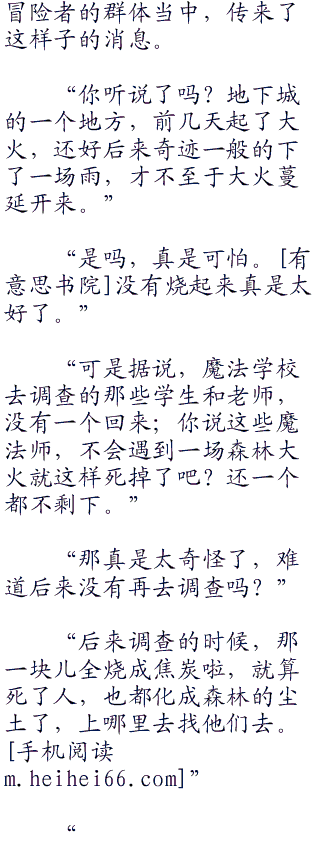 冒险者的群体当中，传来了
这样子的消息。
“你听说了吗？地下城
的一个地方，前几天起了大
火，还好后来奇迹一般的下
了一场雨，才不至于大火蔓
延开来。”
“是吗，真是可怕。[有
意思书院]没有烧起来真是太
好了。”
“可是据说，魔法学校
去调查的那些学生和老师，
没有一个回来；你说这些魔
法师，不会遇到一场森林大
火就这样死掉了吧？还一个
都不剩下。”
“那真是太奇怪了，难
道后来没有再去调查吗？”
“后来调查的时候，那
一块儿全烧成焦炭啦，就算
死了人，也都化成森林的尘
土了，上哪里去找他们去。
[手机阅读
m.heihei66.com]”
“